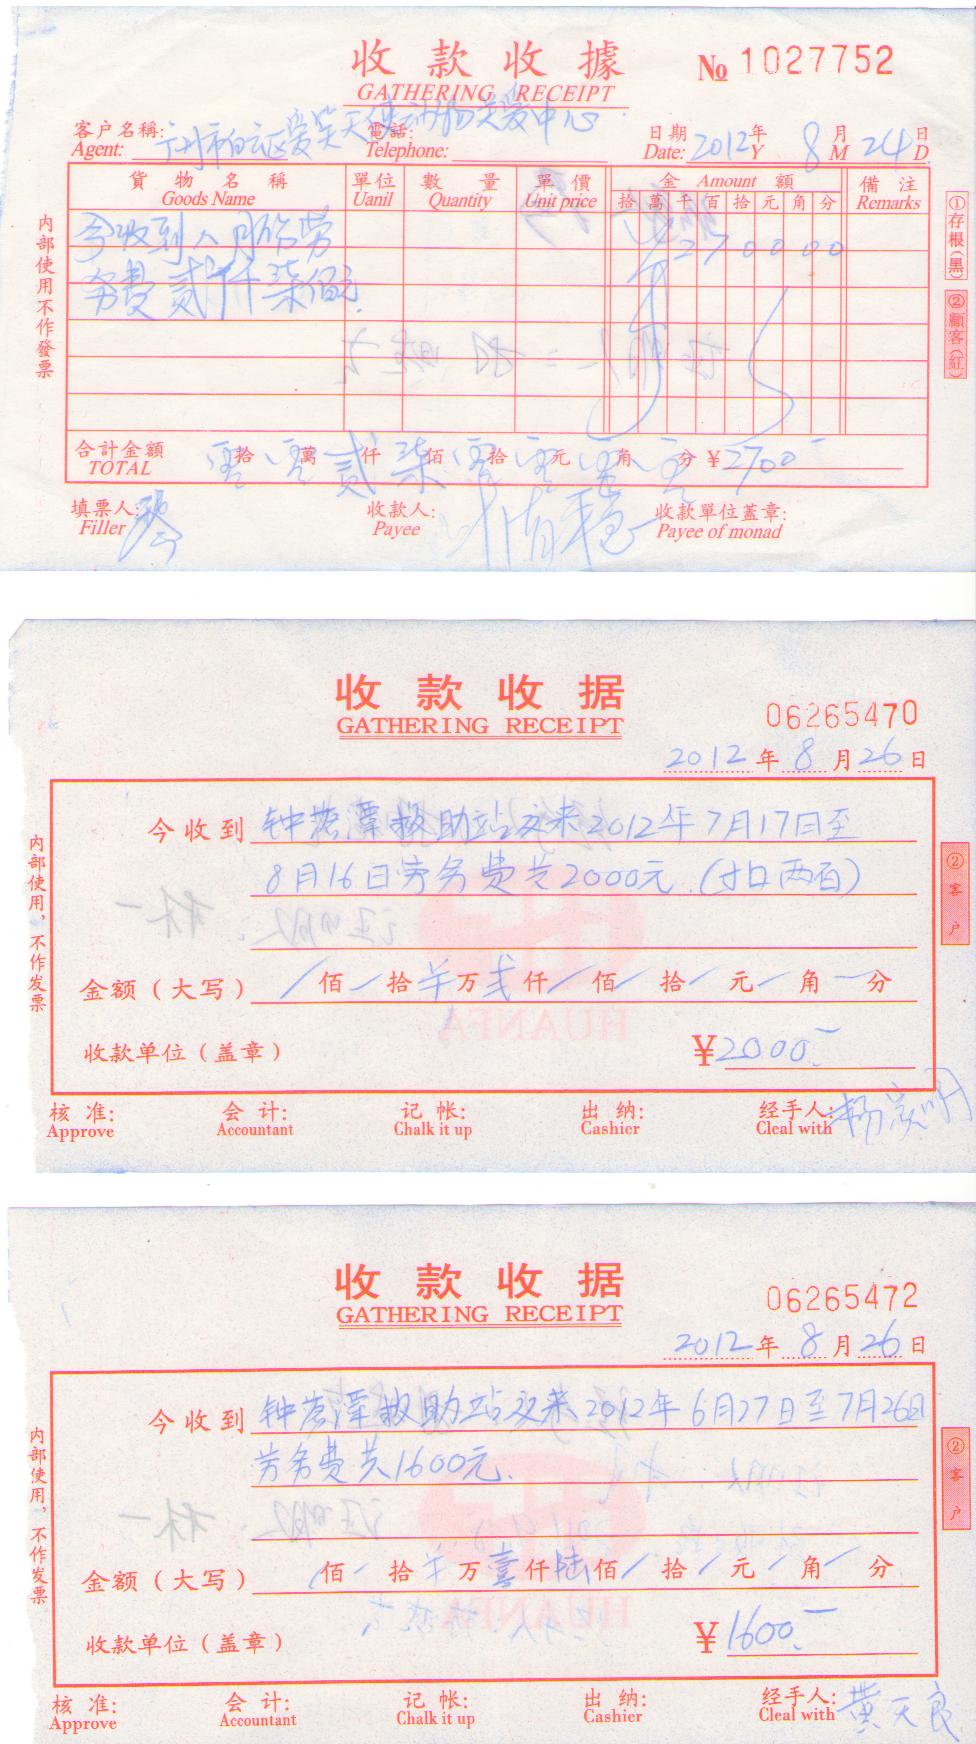 收款收據
GATHERING RECEIPT
№ 1027752
客户名稱: 广州市白云区爱笑天使动物关爱中心
Agent:
電話:
Telephone:
日期 2012年 8月 24日
Date: Y M D
貨物名稱 單位 數量 單價 金 Amount 額 備注
Goods Name Uanil Quantity Unit price 拾 萬 千 百 拾 元 角 分 Remarks
今收到八月份劳 270000
务费贰仟柒佰元.
内部使用不作發票
①存根(黑)
②顧客(紅)
合計金額 零拾零萬贰仟柒佰零拾零元零角零分 ¥2700
TOTAL
填票人: 收款人: 收款單位蓋章:
Filler Payee Payee of monad
收款收据
GATHERING RECEIPT
06265470
2012年8月26日
今收到 钟落潭救助站友来2012年7月17日至
8月16日劳务费共2000元.(扣两百)
金额(大写) 佰 拾 万 贰仟 佰 拾 元 角 分
收款单位(盖章) ¥2000.
内部使用,不作发票
②客户
HUANFA
核准: 会计: 记帐: 出纳: 经手人:
Approve Accountant Chalk it up Cashier Cleal with
收款收据
GATHERING RECEIPT
06265472
2012年8月26日
今收到 钟落潭救助站友来2012年6月27日至7月26日
劳务费共1600元.
金额(大写) 佰 拾 万壹仟陆佰 拾 元 角 分
收款单位(盖章) ¥1600.
内部使用,不作发票
②客户
HUANFA
核准: 会计: 记帐: 出纳: 经手人: 黄天良
Approve Accountant Chalk it up Cashier Cleal with